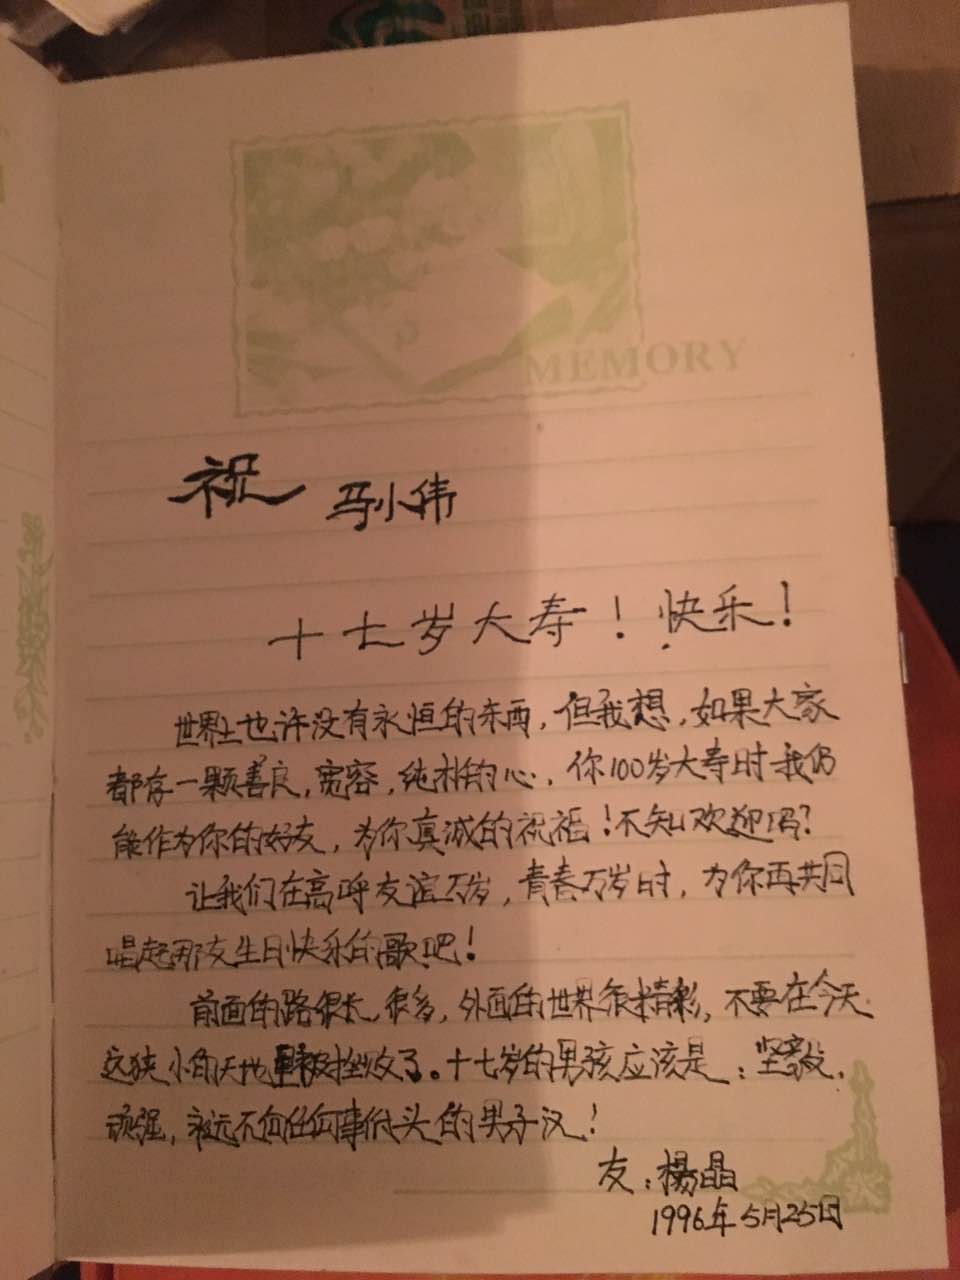 MEMORY
祝 马小伟
十七岁大寿！快乐！
世界上也许没有永恒的东西，但我想，如果大家
都存一颗善良，宽容，纯朴的心，你100岁大寿时我仍
能作为你的好友，为你真诚的祝福！不知欢迎吗？
让我们在高呼友谊万岁，青春万岁时，为你再共同
唱起那支生日快乐的歌吧！
前面的路很长，很多，外面的世界很精彩，不要在今天
这狭小的天地里被挫败了。十七岁的男孩应该是：坚毅、
顽强，永远不向任何事低头的男子汉！
友：楊晶
1996年5月25日